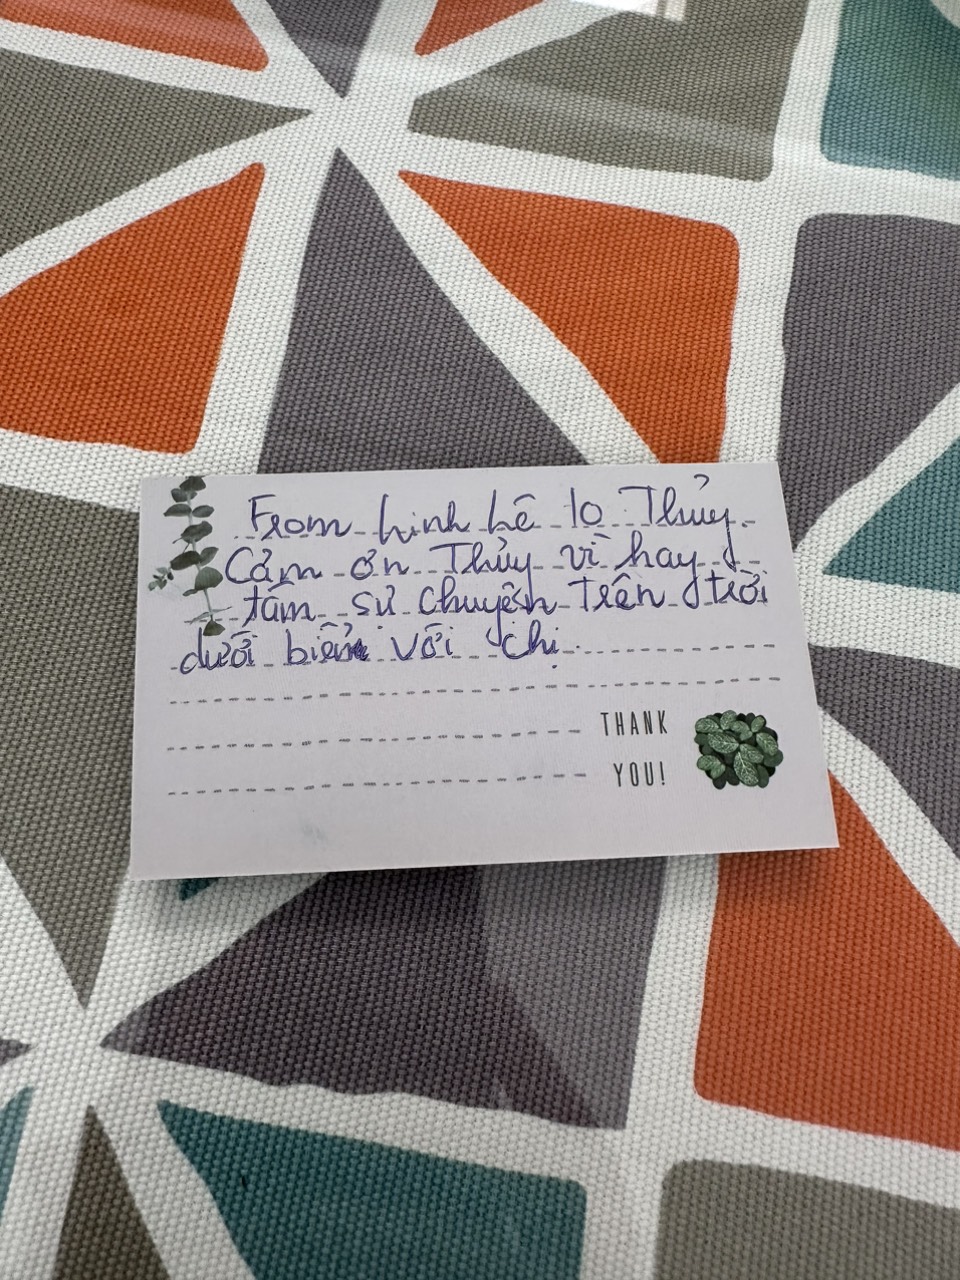 From hinh hê to Thủy.
Cảm ơn Thủy vì hay
tâm sự chuyện trên trời
dưới biển với chị.
THANK
YOU!